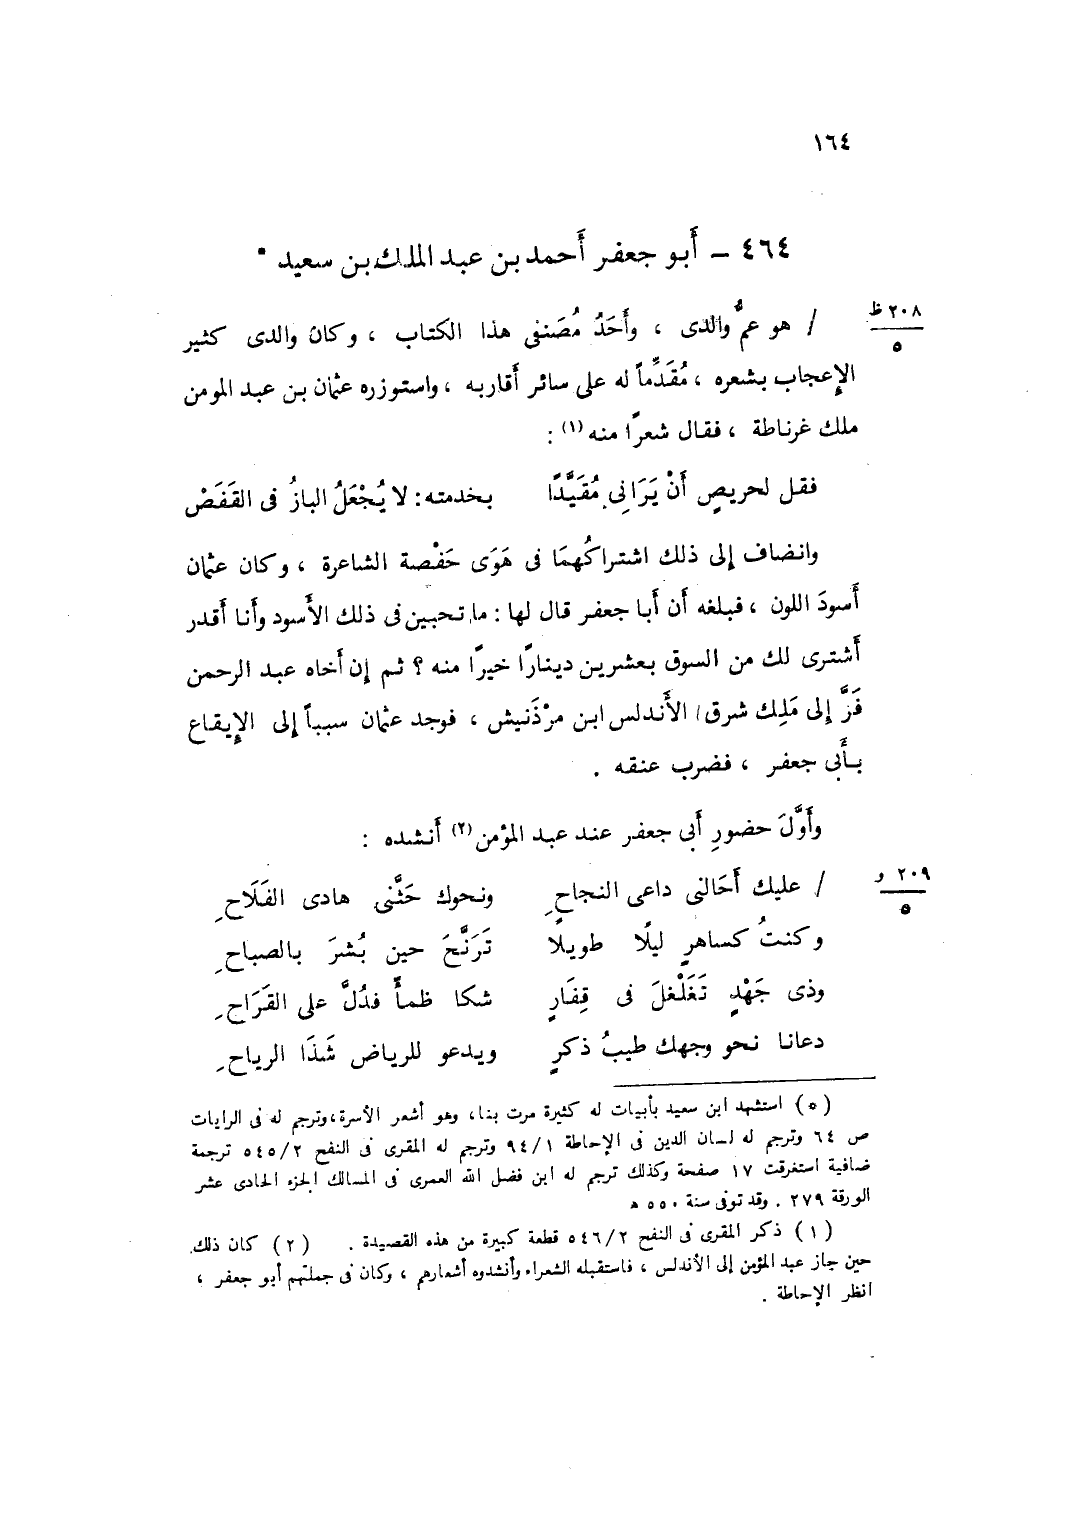 ١٦٤
٤٦٤ – أَبو جعفر أَحمد بن عبد الملك بن سعيد *
٢٠٨ ظ
٥
/ هو عمُّ والدى ، وأَحَدُ مُصَنفى هذا الكتاب ، وكان والدى كثير
الإِعجاب بشعره ، مُقَدِّماً له على سائر أَقاربه ، واستوزره عثمان بن عبد المومن
ملك غرناطة ، فقال شعرًا منه (١) :
فقل لحريصٍ أَنْ يَرَانِى مُقَيَّدًا بخدمته: لا يُجْعَلُ البازُ فى القَفَصْ
وانضاف إلى ذلك اشتراكُهمَا فى هَوَى حَفْصة الشاعرة ، وكان عثمان
أَسودَ اللون ، فبلغه أَن أَبا جعفر قال لها : ما تحبين فى ذلك الأَسود وأَنا أَقدر
أَشترى لك من السوق بعشرين دينارًا خيرًا منه ؟ ثم إِن أَخاه عبد الرحمن
فَرَّ إِلى مَلِك شرق / الأَندلس ابن مرْذَنيش ، فوجد عثمان سبباً إِلى الإِيقاع
بأَبى جعفر ، فضرب عنقه .
وأَوَّلَ حضورِ أَبى جعفر عند عبد المؤمن (٢) أَنشده :
٢٠٩ و
٥
/ عليك أَحَالنى داعى النجاحِ ونحوك حَثَّنى هادى الفَلَاحِ
وكنتُ كساهرٍ ليلًا طويلًا تَرَنَّحَ حين بُشرَ بالصباحِ
وذى جَهْدٍ تَغَلْغلَ فى قِفَارٍ شكا ظمأً فدُلَّ على القَرَاحِ
دعانا نحو وجهك طيبُ ذكرٍ ويدعو للرياض شَذَا الرياحِ
(*) استشهد ابن سعيد بأبيات له كثيرة مرت بنا، وهو أشعر الأسرة، وترجم له فى الرايات
ص ٦٤ وترجم له لسان الدين فى الإحاطة ٩٤/١ وترجم له المقرى فى النفح ٥٤٥/٢ ترجمة
ضافية استغرقت ١٧ صفحة وكذلك ترجم له ابن فضل الله العمرى فى المسالك الجزء الحادى عشر
الورقة ٢٧٩ . وقد توفى سنة ٥٥٠ ه
(١) ذكر المقرى فى النفح ٥٤٦/٢ قطعة كبيرة من هذه القصيدة . (٢) كان ذلك
حين جاز عبد المؤمن إلى الأندلس ، فاستقبله الشعراء وأنشدوه أشعارهم ، وكان فى جملتهم أبو جعفر ،
انظر الإحاطة .